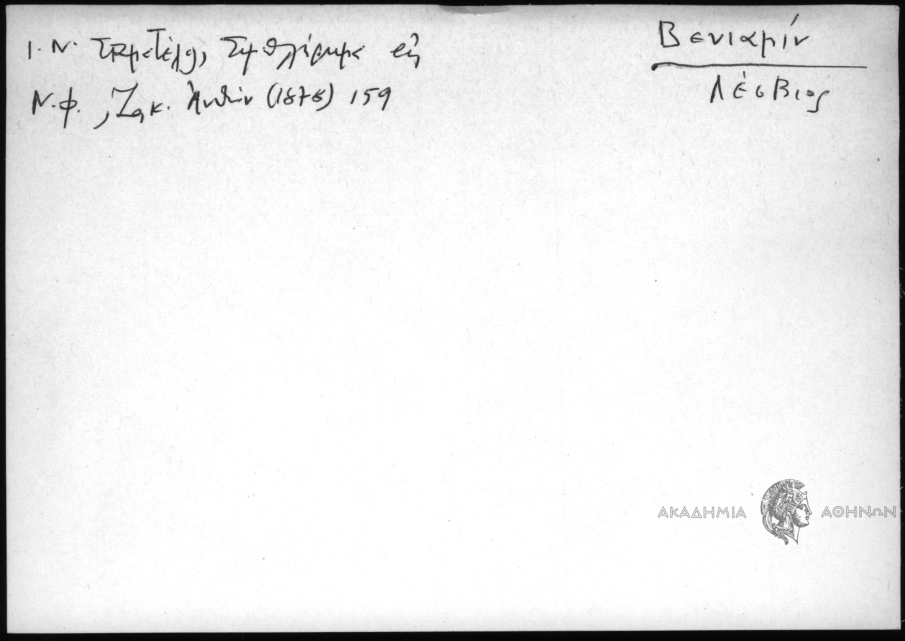 Βενιαμίν
Λέσβιος
Ι. Ν. Σταματέλος, Συμπλήρωμα εἰς
Ν. φ., Ζακ. Ἀνθών (1878) 159
ΑΚΑΔΗΜΙΑ ΑΘΗΝΩΝ